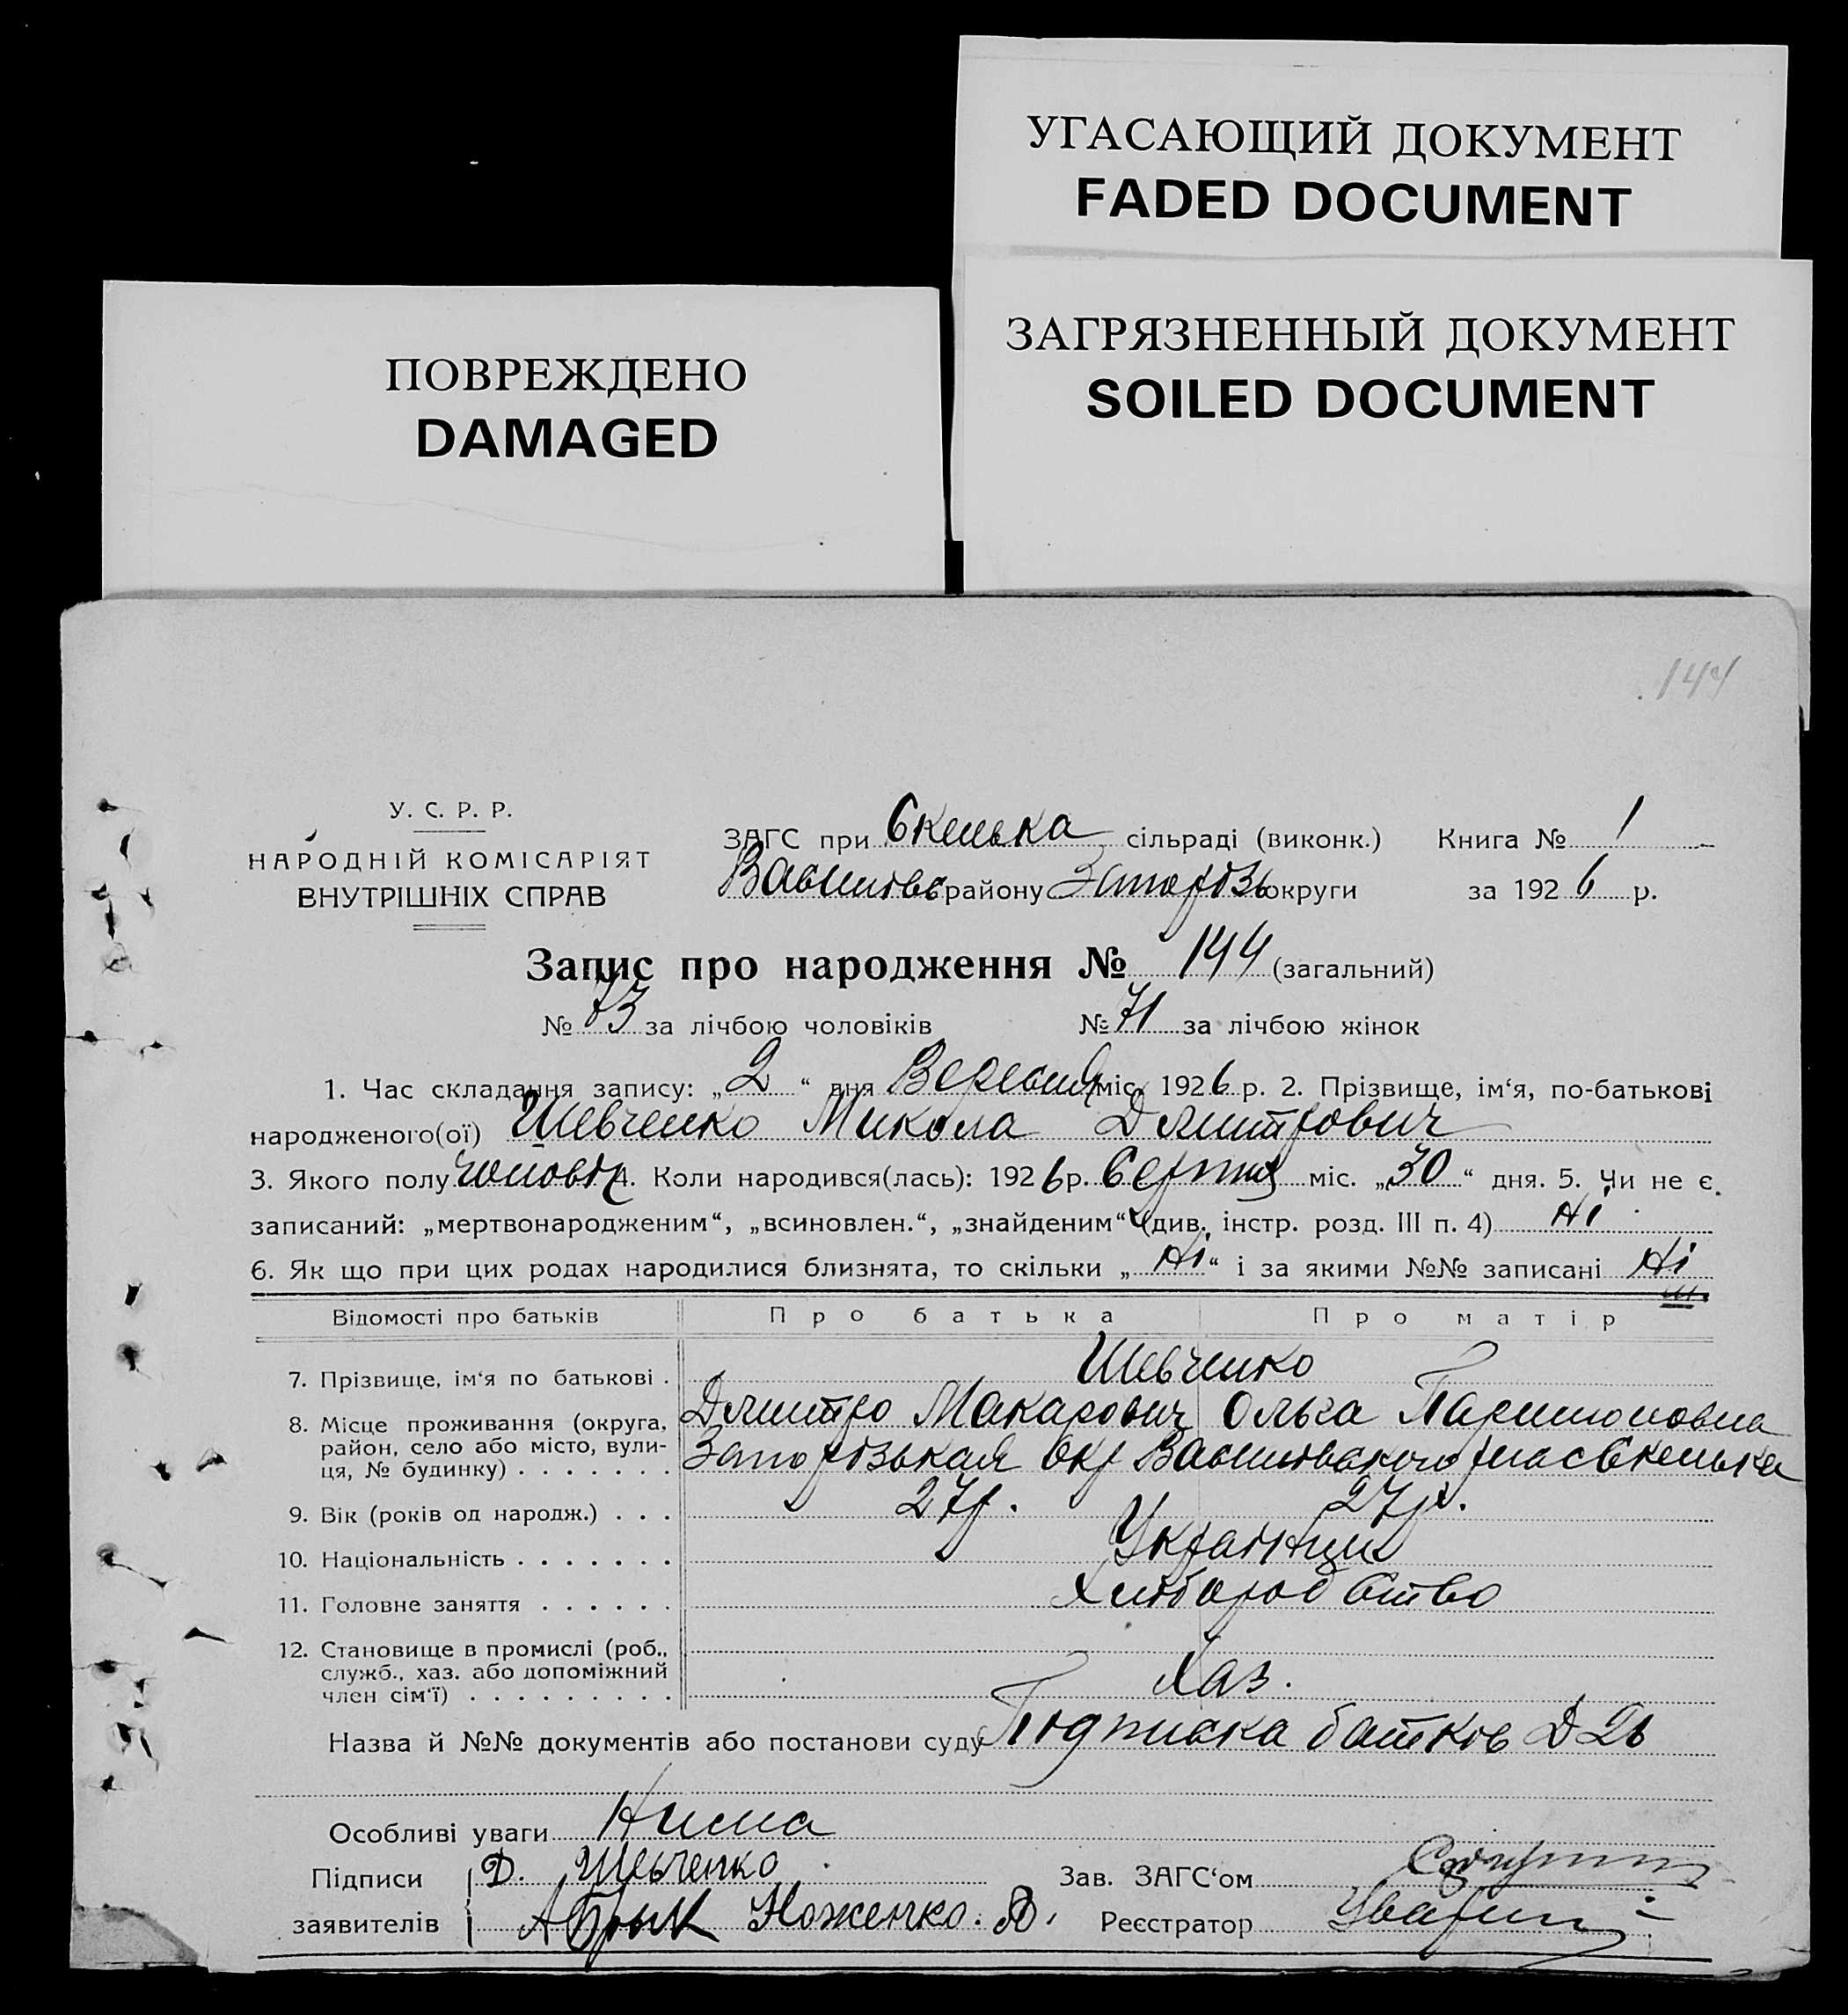 УГАСАЮЩИЙ ДОКУМЕНТ
FADED DOCUMENT
ЗАГРЯЗНЕННЫЙ ДОКУМЕНТ
SOILED DOCUMENT
ПОВРЕЖДЕНО
DAMAGED
144
У. С. Р. Р.
НАРОДНІЙ КОМІСАРІЯТ
ВНУТРІШНІХ СПРАВ
ЗАГС при Скелька сільраді (виконк.) Книга № 1
Василівс району Запорізь округи за 1926 р.
Запис про народження № 144 (загальний)
№ 73 за лічбою чоловіків № 71 за лічбою жінок
1. Час складання запису: „2“ дня Вересня міс. 1926 р. 2. Прізвище, ім‘я, по-батькові
народженого(ої) Шевченко Микола Дмитрович
3. Якого полу чоловіч 4. Коли народився(лась): 1926 р. Серпня міс. „30“ дня. 5. Чи не є
записаний: „мертвонародженим“, „всиновлен.“, „знайденим“ (див. інстр. розд. III п. 4) Ні
6. Як що при цих родах народилися близнята, то скільки „Ні“ і за якими №№ записані Ні
Відомості про батьків Про батька Про матір
7. Прізвище, ім‘я по батькові . Шевченко
Дмитро Макарович Ольга Паримоновна
8. Місце проживання (округа, район, село або місто, вулиця, № будинку) . . . . . . . Запорізькая Окр Василівского Скелька
9. Вік (років од народж.) . . . 27р. 27р.
10. Національність . . . . . . . Українци
11. Головне заняття . . . . . . Хліборобство
12. Становище в промислі (роб., служб., хаз. або допоміжний член сім‘ї) . . . . . . . . . Хаз.
Назва й №№ документів або постанови суду Підписка батьков
Особливі уваги Нима
Підписи Д. Шевченко Зав. ЗАГС‘ом
заявителів Ноженко. Реєстратор